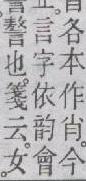 省各本作肖。今
正。言字依韵會
謷謷也。箋云。女